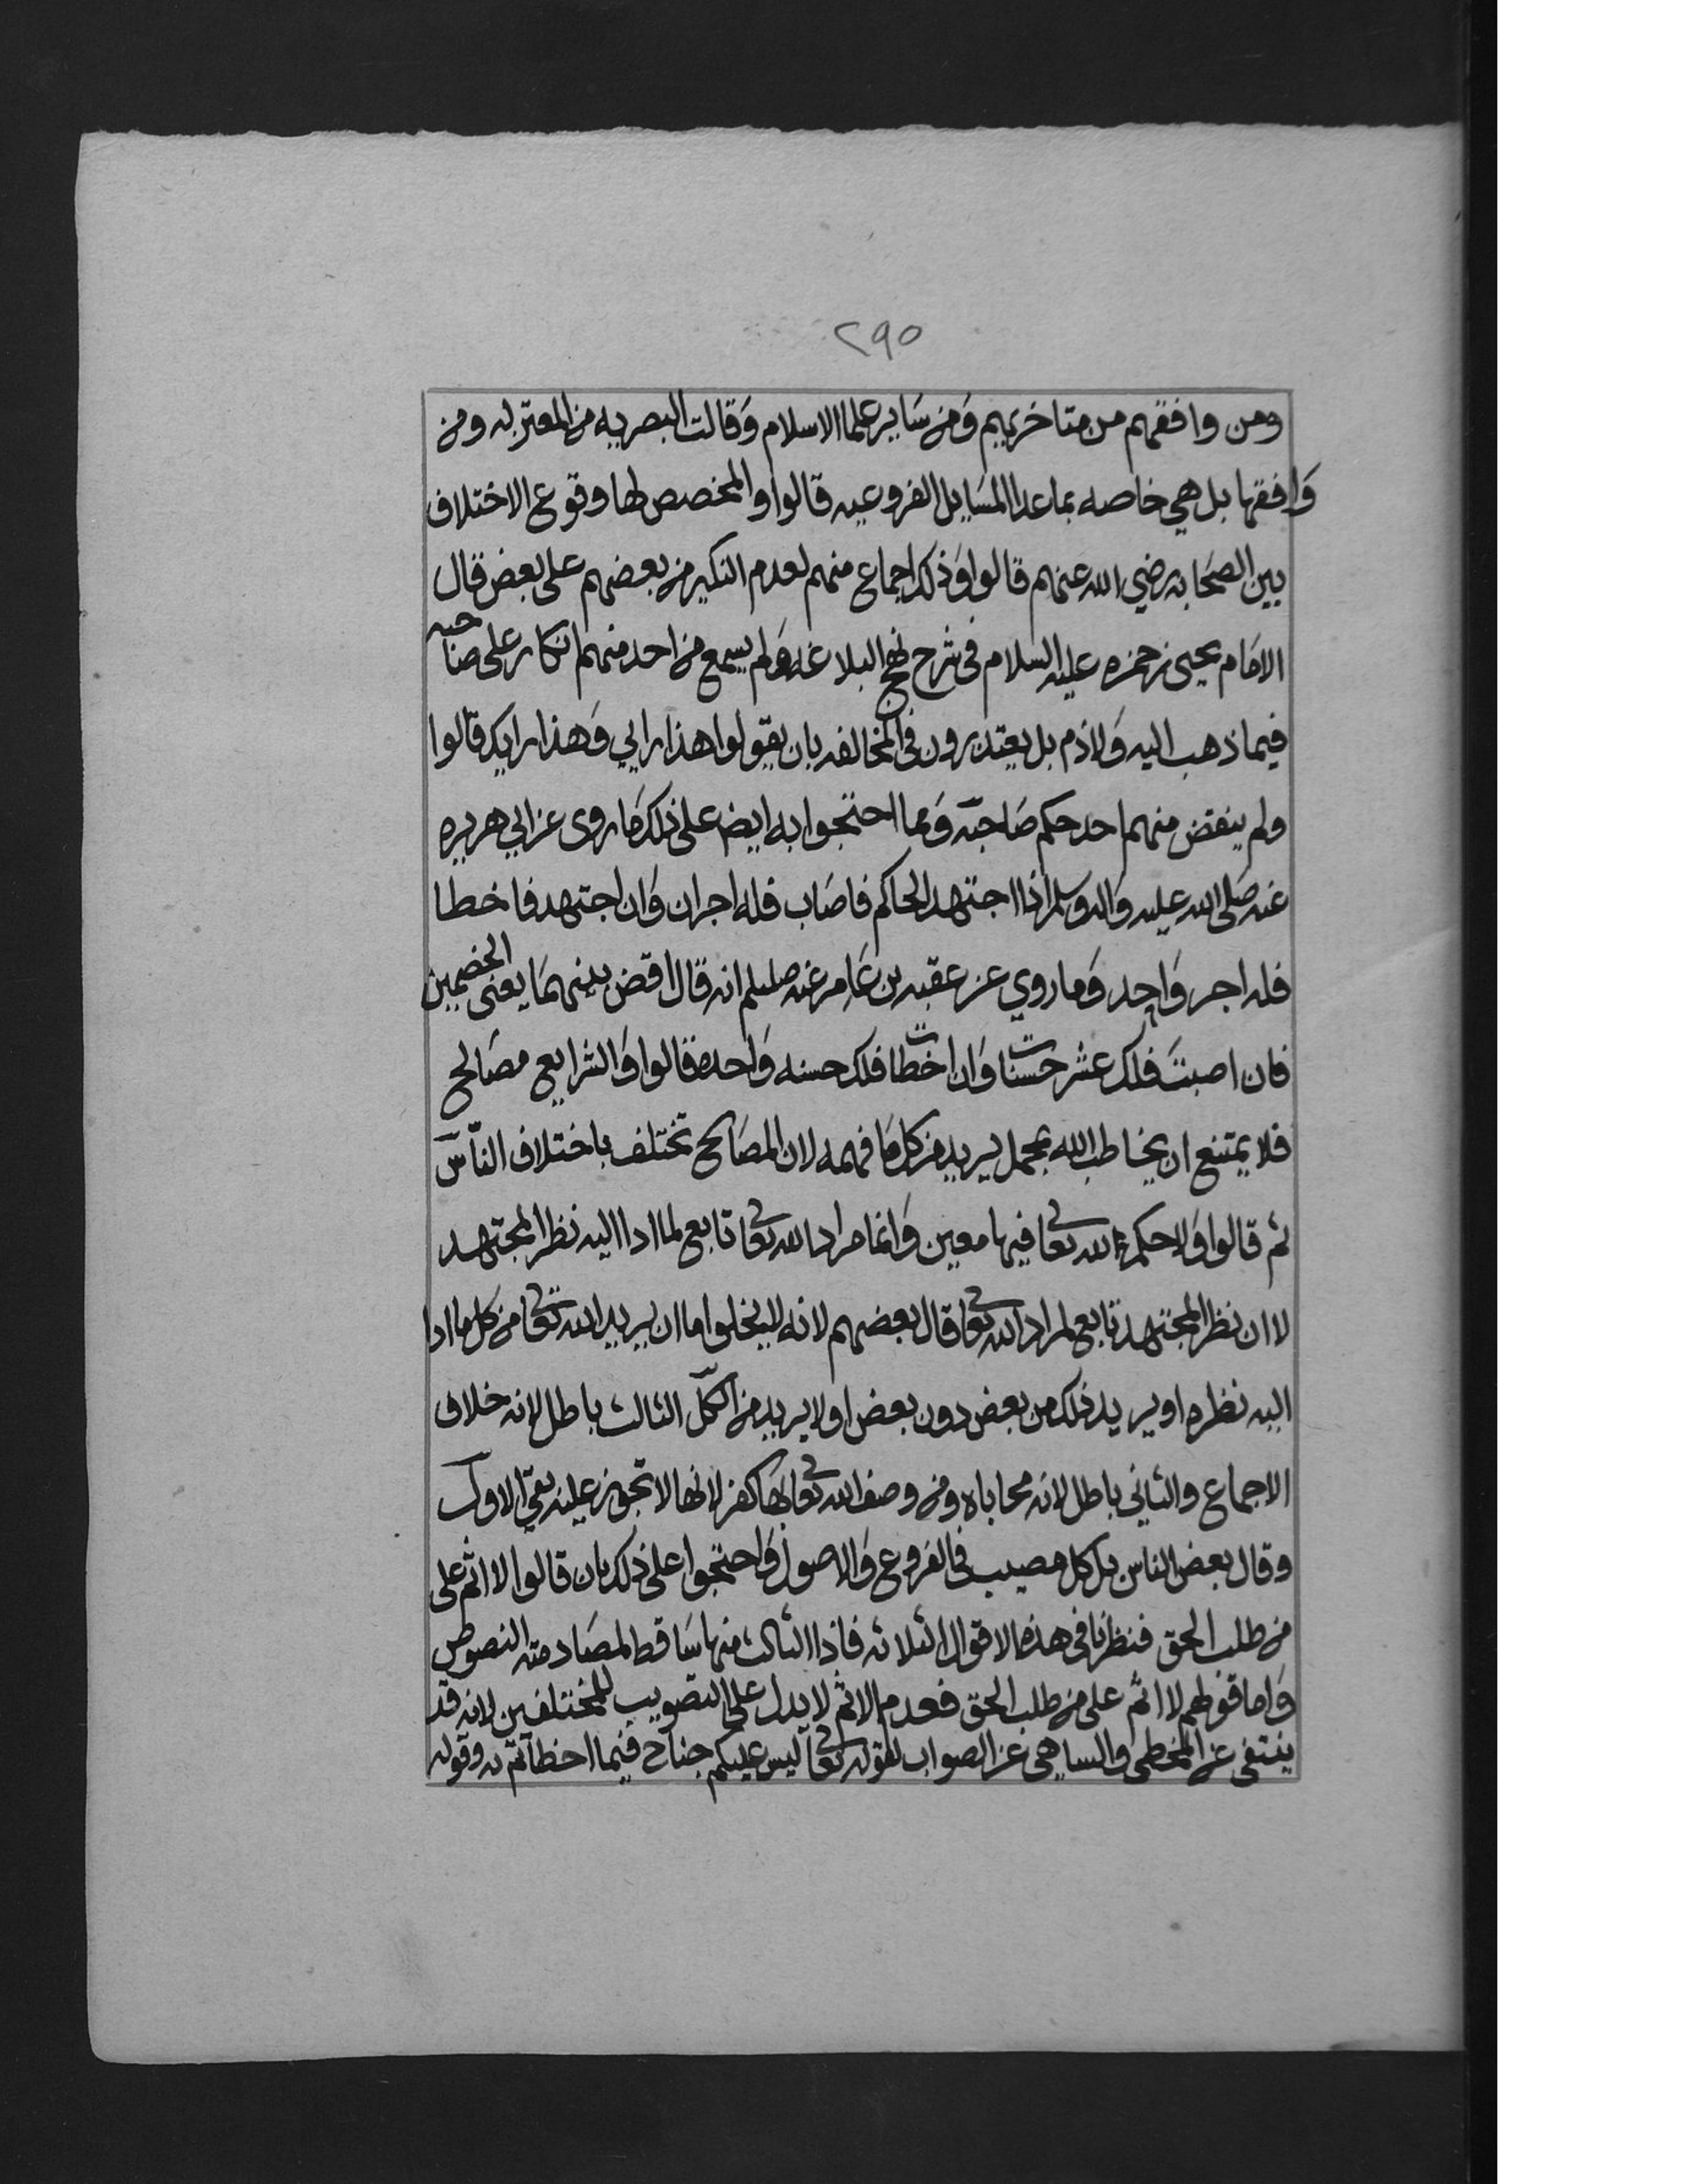 ٢٩٥
ومن وافقهم من متاخريهم ومن ساير علما الاسلام وقالت البصريه من المعتزله ومن
وافقها بل هي خاصه بما عدا المسايل الفروعيه قالوا والمخصص لها وقوع الاختلاف
بين الصحابه رضي الله عنهم قالوا وذلك اجماع منهم لعدم النكير من بعضهم على بعض قال
الامام يحيى بن حمزه عليه السلام في شرح نهج البلاغه ولم يسمع من احد منهم انكار على صاحبه
فيما ذهب اليه ولا ذم بل يعتذرون في المخالفه بان يقولوا هذا رايي وهذا رايك قالوا
ولم ينقض منهم احد حكم صاحبه ومما احتجوا به ايض على ذلك ما روى عن ابي هريره
عنه صلى الله عليه واله وسلم اذا اجتهد الحاكم فاصاب فله اجران وان اجتهد فاخطا
فله اجر واحد وما روي عن عقبه بن عامر عنه صللم انه قال اقض بينهما يعنى الخصمين
فان اصبت فلك عشر حسنات وان اخطات فلك حسنه واحده قالوا والشرايع مصالح
فلا يمتنع ان يخاطب الله بمجمل يريد من كل ما فهمه لان المصالح تختلف باختلاف الناس
ثم قالوا ولا حكم لله تعالى فيها معين وانما مراد الله تعالى تابع لما ادا اليه نظر المجتهد
لا ان نظر المجتهد تابع لمراد الله تعالى قال بعضهم لانه لا يخلوا اما ان يريد الله تعالى من كل ما ادا
اليه نظره او يريد ذلك من بعض دون بعض او لا يريد من الكل الثالث باطل لانه خلاف
الاجماع والثاني باطل لانه محاباه ومن وصف الله تعالى بها كفر لانها لا تجوز عليه بقي الاول
وقال بعض الناس بل كل مصيب في الفروع والاصول واحتجوا على ذلك بان قالوا لا اثم على
من طلب الحق فنظرنا في هذه الاقوال الثلاثه فاذا الثالث منها ساقط لمصادمته النصوص
واما قولهم لا اثم على من طلب الحق فعدم الاثم لا يدل على التصويب للمختلفين لانه قد
ينتفى عن المخطي والساهي عن الصواب لقوله تعالى ليس عليكم جناح فيما اخطاتم به وقوله